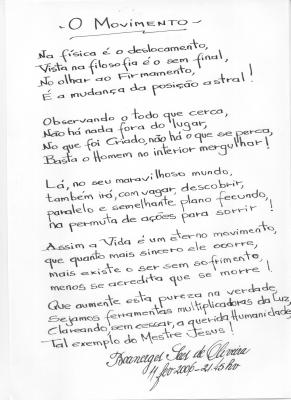 - O Movimento -
Na física é o deslocamento,
Vista na filosofia é o sem final,
No olhar ao Firmamento,
É a mudança da posição astral!
Observando o todo que cerca,
Não há nada fora do lugar,
No que foi Criado, não há o que se perca,
Basta o Homem no interior mergulhar!
Lá, no seu maravilhoso mundo,
também irá, com vagar, descobrir,
paralelo e semelhante plano fecundo,
na permuta de ações para sorrir!
Assim a Vida é um eterno movimento,
que quanto mais sincero ele ocorre,
mais existe o ser sem sofrimento,
menos se acredita que se morre!
Que aumente esta pureza na verdade,
Sejamos ferramentas multiplicadoras da Luz,
Clareando sem cessar, a querida Humanidade
Tal exemplo do Mestre Jesus!
de Oliveira
11 fev 2006 - 21:45 hr